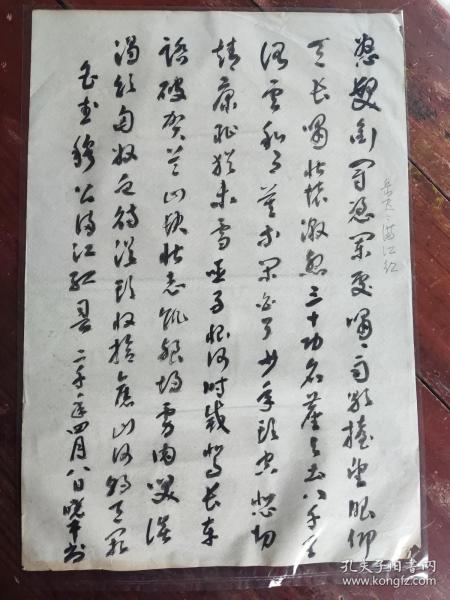 怒髮衝冠凭阑处啸、雨歇擡望眼仰
天长啸壮怀激烈三十功名尘与土八千里
路云和月莫等闲白了少年头空悲切
靖康耻犹未雪臣子恨何时灭驾长车
踏破贺兰山缺壮志饥餐胡虏肉笑谈
渴饮匈奴血待从头收拾旧山河朝天阙
穆公满江红 二千年四月八日晓平书
岳飞：满江红
孔夫子旧书网
www.kongfz.com